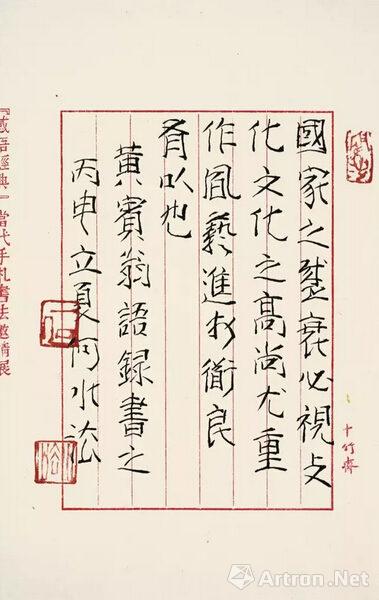 十竹齋
國家之盛衰必視文
化文化之高尚尤重
作風藝進於術良
有以也
黃賓翁語録書之
丙申立夏何水法
『感悟經典』當代手札書法邀請展
Artron.Net